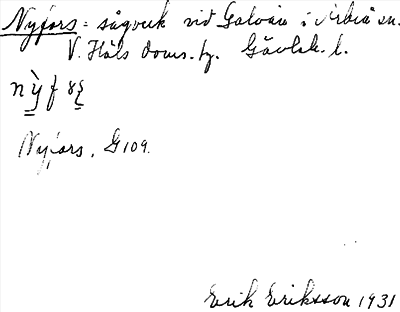 Nyfors = sågverk vid Galvån i Arbrå sn.
V. Häls doms. hg. Gävleb. l.
nỳf
Nyfors. G 109.
Erik Eriksson 1931